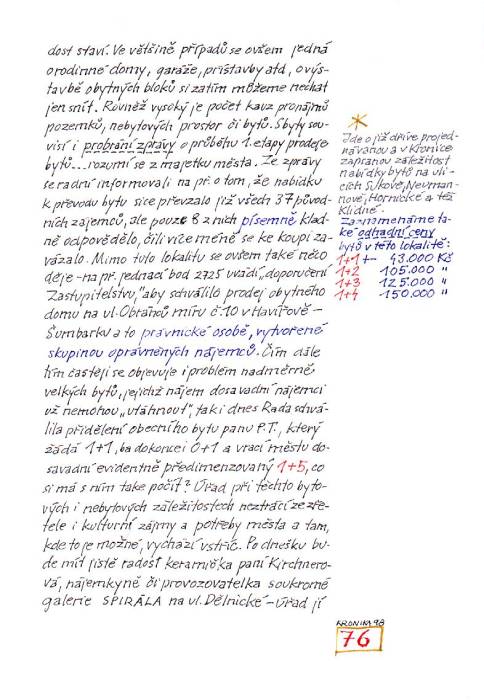 dost staví. Ve většině případů se ovšem jedná
o rodinné domy, garáže, přístavby atd., o výs-
tavbě obytných bloků si zatím můžeme nechat
jen snít. Rovněž vysoký je počet kauz pronájmů
pozemků, nebytových prostor či bytů. S byty sou-
visí i probrání zprávy o průběhu 1. etapy prodeje
bytů... rozumí se z majetku města. Ze zprávy
se radní informovali na př. o tom, že nabídku
k převodu bytu sice převzalo již všech 37 původ-
ních zájemců, ale pouze 8 z nich písemně klad-
ně odpovědělo, čili více méně se ke koupi za-
vázalo. Mimo tuto lokalitu se ovšem také něco
děje - na př. jednací bod 2725 uvádí „doporučení
Zastupitelstvu," aby schválilo prodej obytného
domu na ul. Obránců míru č. 10 v Havířově -
Šumbarku a to právnické osobě, vytvořené
skupinou oprávněných nájemců. Čím dále
tím častěji se objevuje i problém nadměrně
velkých bytů, jejichž nájem dosavadní nájemci
už nemohou „utáhnout", tak i dnes Rada schvá-
lila přidělení obecního bytu panu P.T., který
žádá 1+1, ba dokonce i 0+1 a vrací městu do-
savadní evidentně předimenzovaný 1+5, co
si má s ním také počít? Úřad při těchto byto-
vých i nebytových záležitostech neztrácí ze zře-
tele i kulturní zájmy a potřeby města a tam,
kde to je možné, vychází vstříc. Po dnešku bu-
de mít jistě radost keramička paní Kirchnero-
vá, nájemkyně či provozovatelka soukromé
galerie SPIRÁLA na ul. Dělnické - úřad jí
Jde o již dříve projed-
návanou a v Kronice
zapsanou záležitost
nabídky bytů na uli-
cích Sukově, Neuman-
nově, Hornické a též
Klidné.
Zaznamenáme ta-
ké odhadní ceny
bytů v této lokalitě:
1+1 +- 43.000 Kč
1+2 105.000 "
1+3 125.000 "
1+4 150.000 "
KRONIKA 98
76